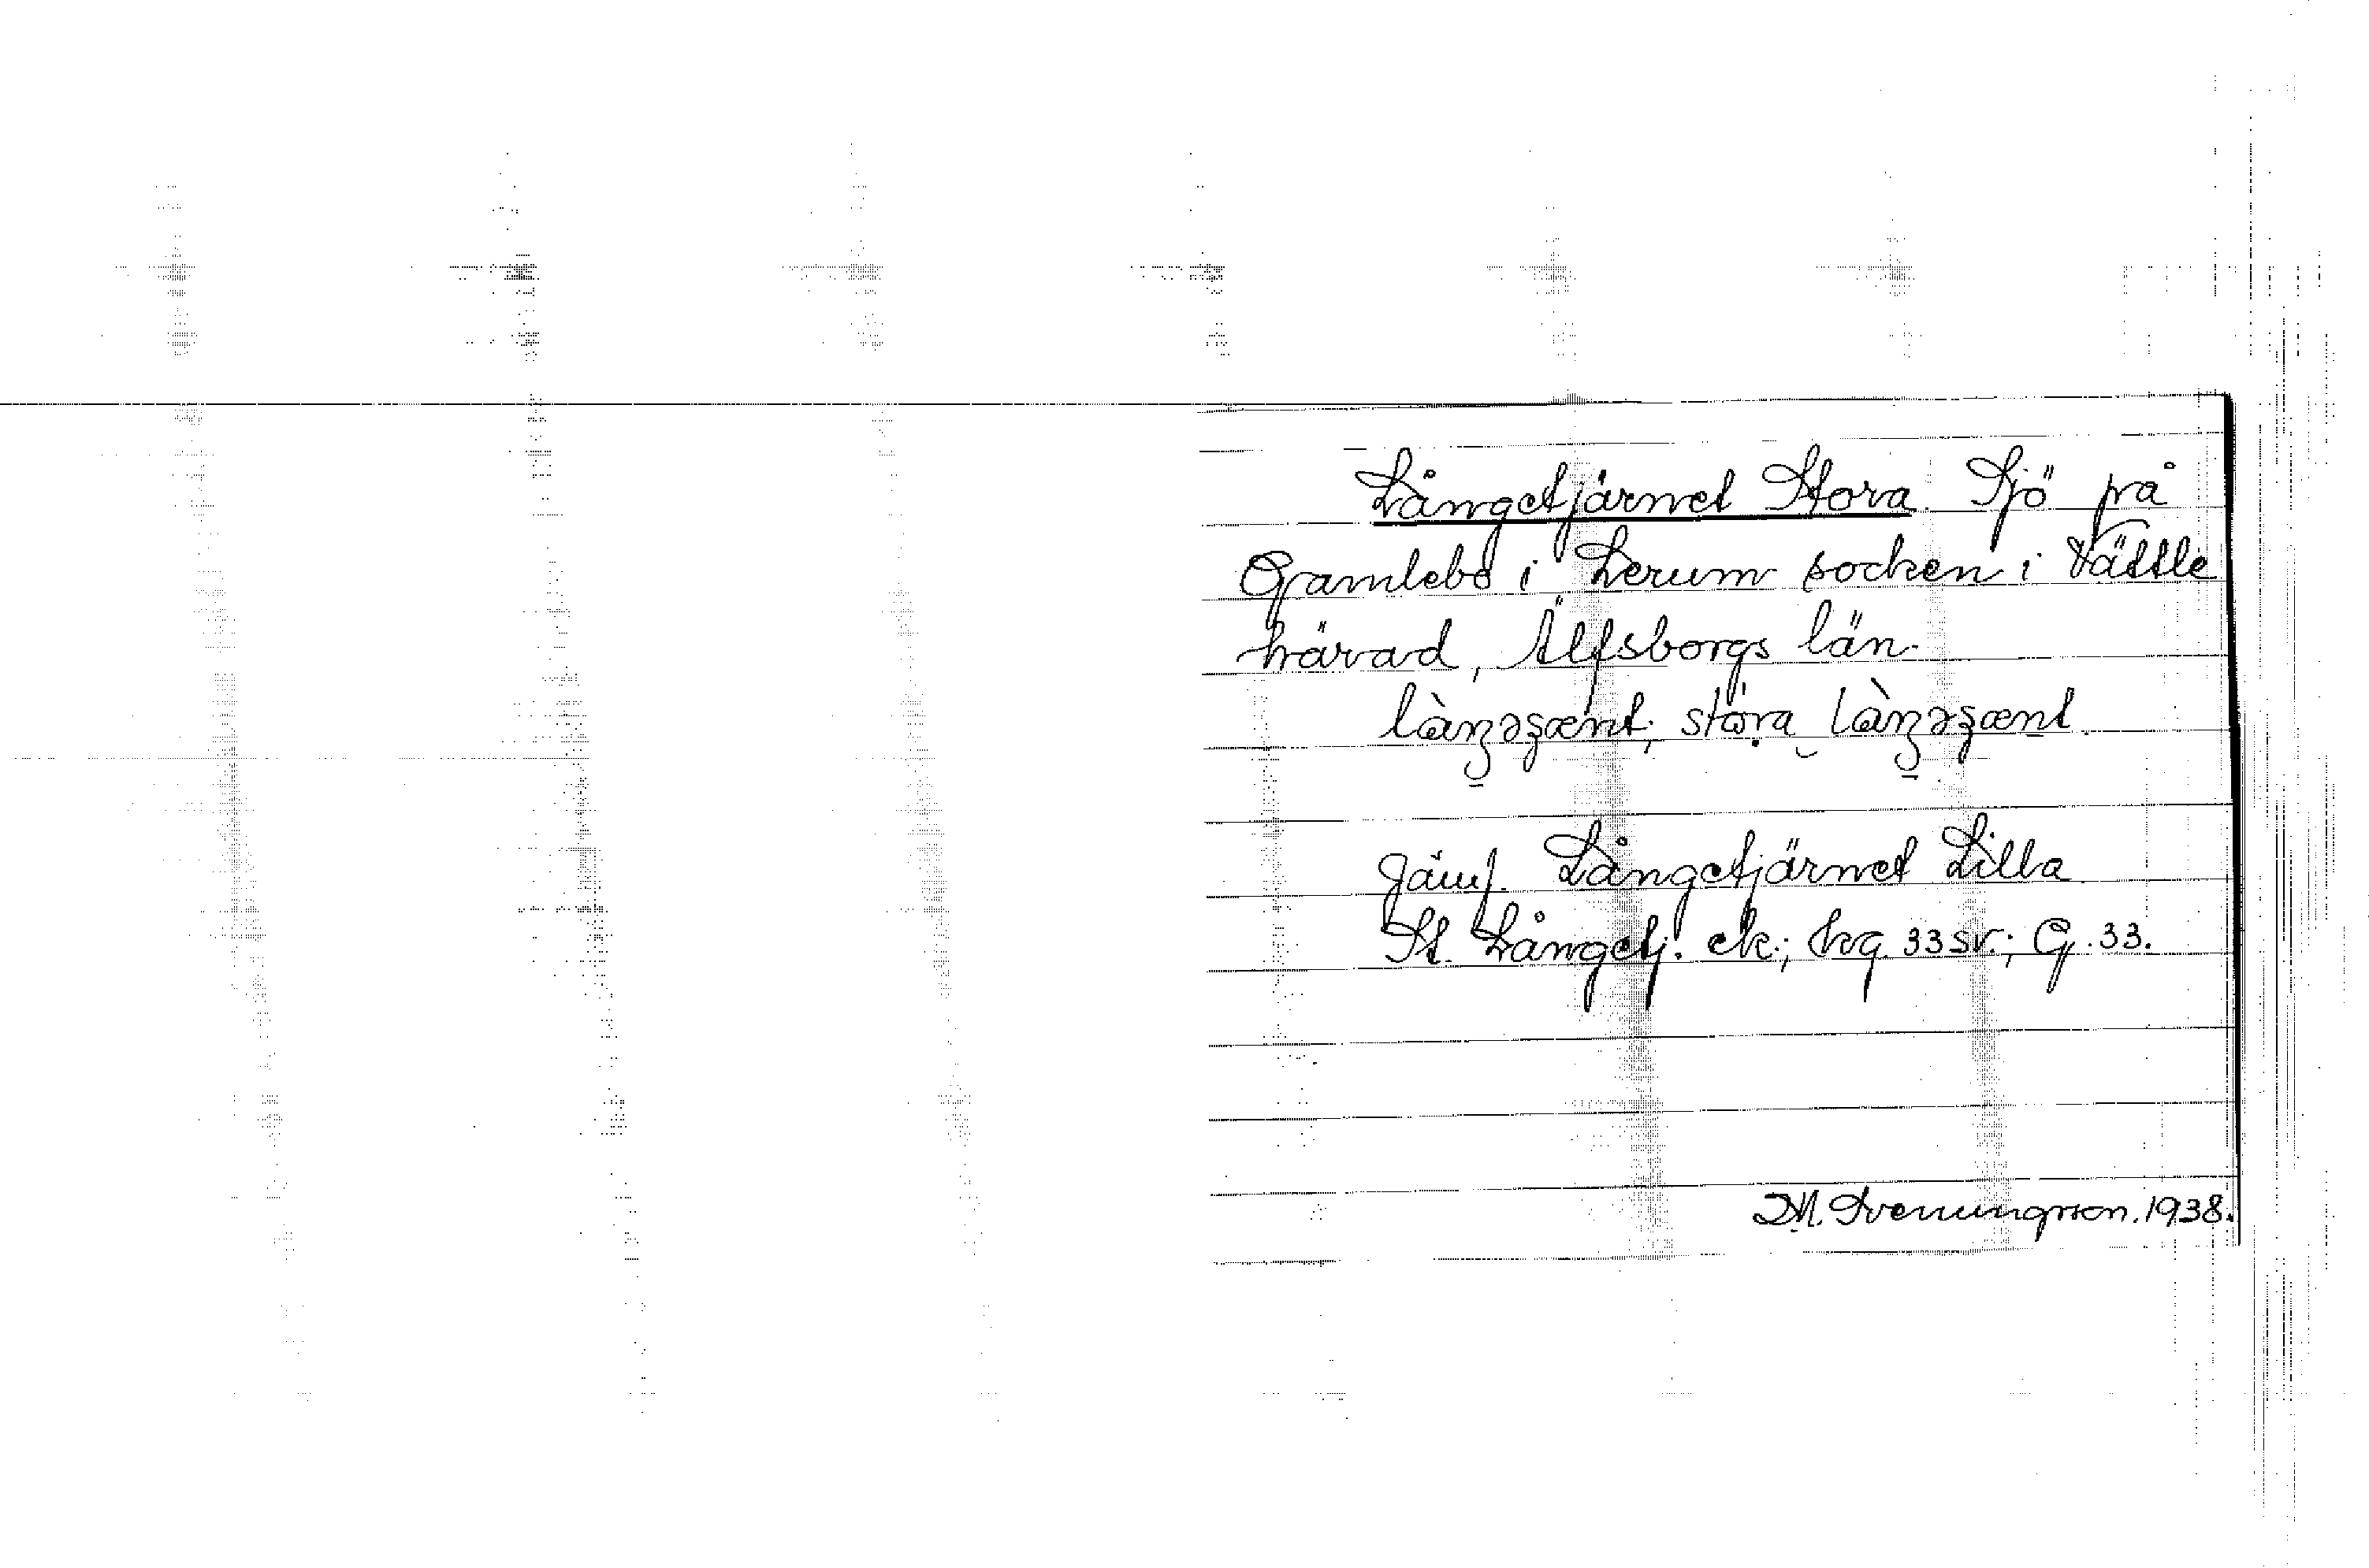 Långetjärnet Stora. Sjö på
Gamlebo i Lerum socken i Vättle
härad, Älfsborgs län.
Jämf. Långetjärnet Lilla
St. Långetj. ek.; hq. 33 sv.; G. 33.
M. Svenungsson. 1938.